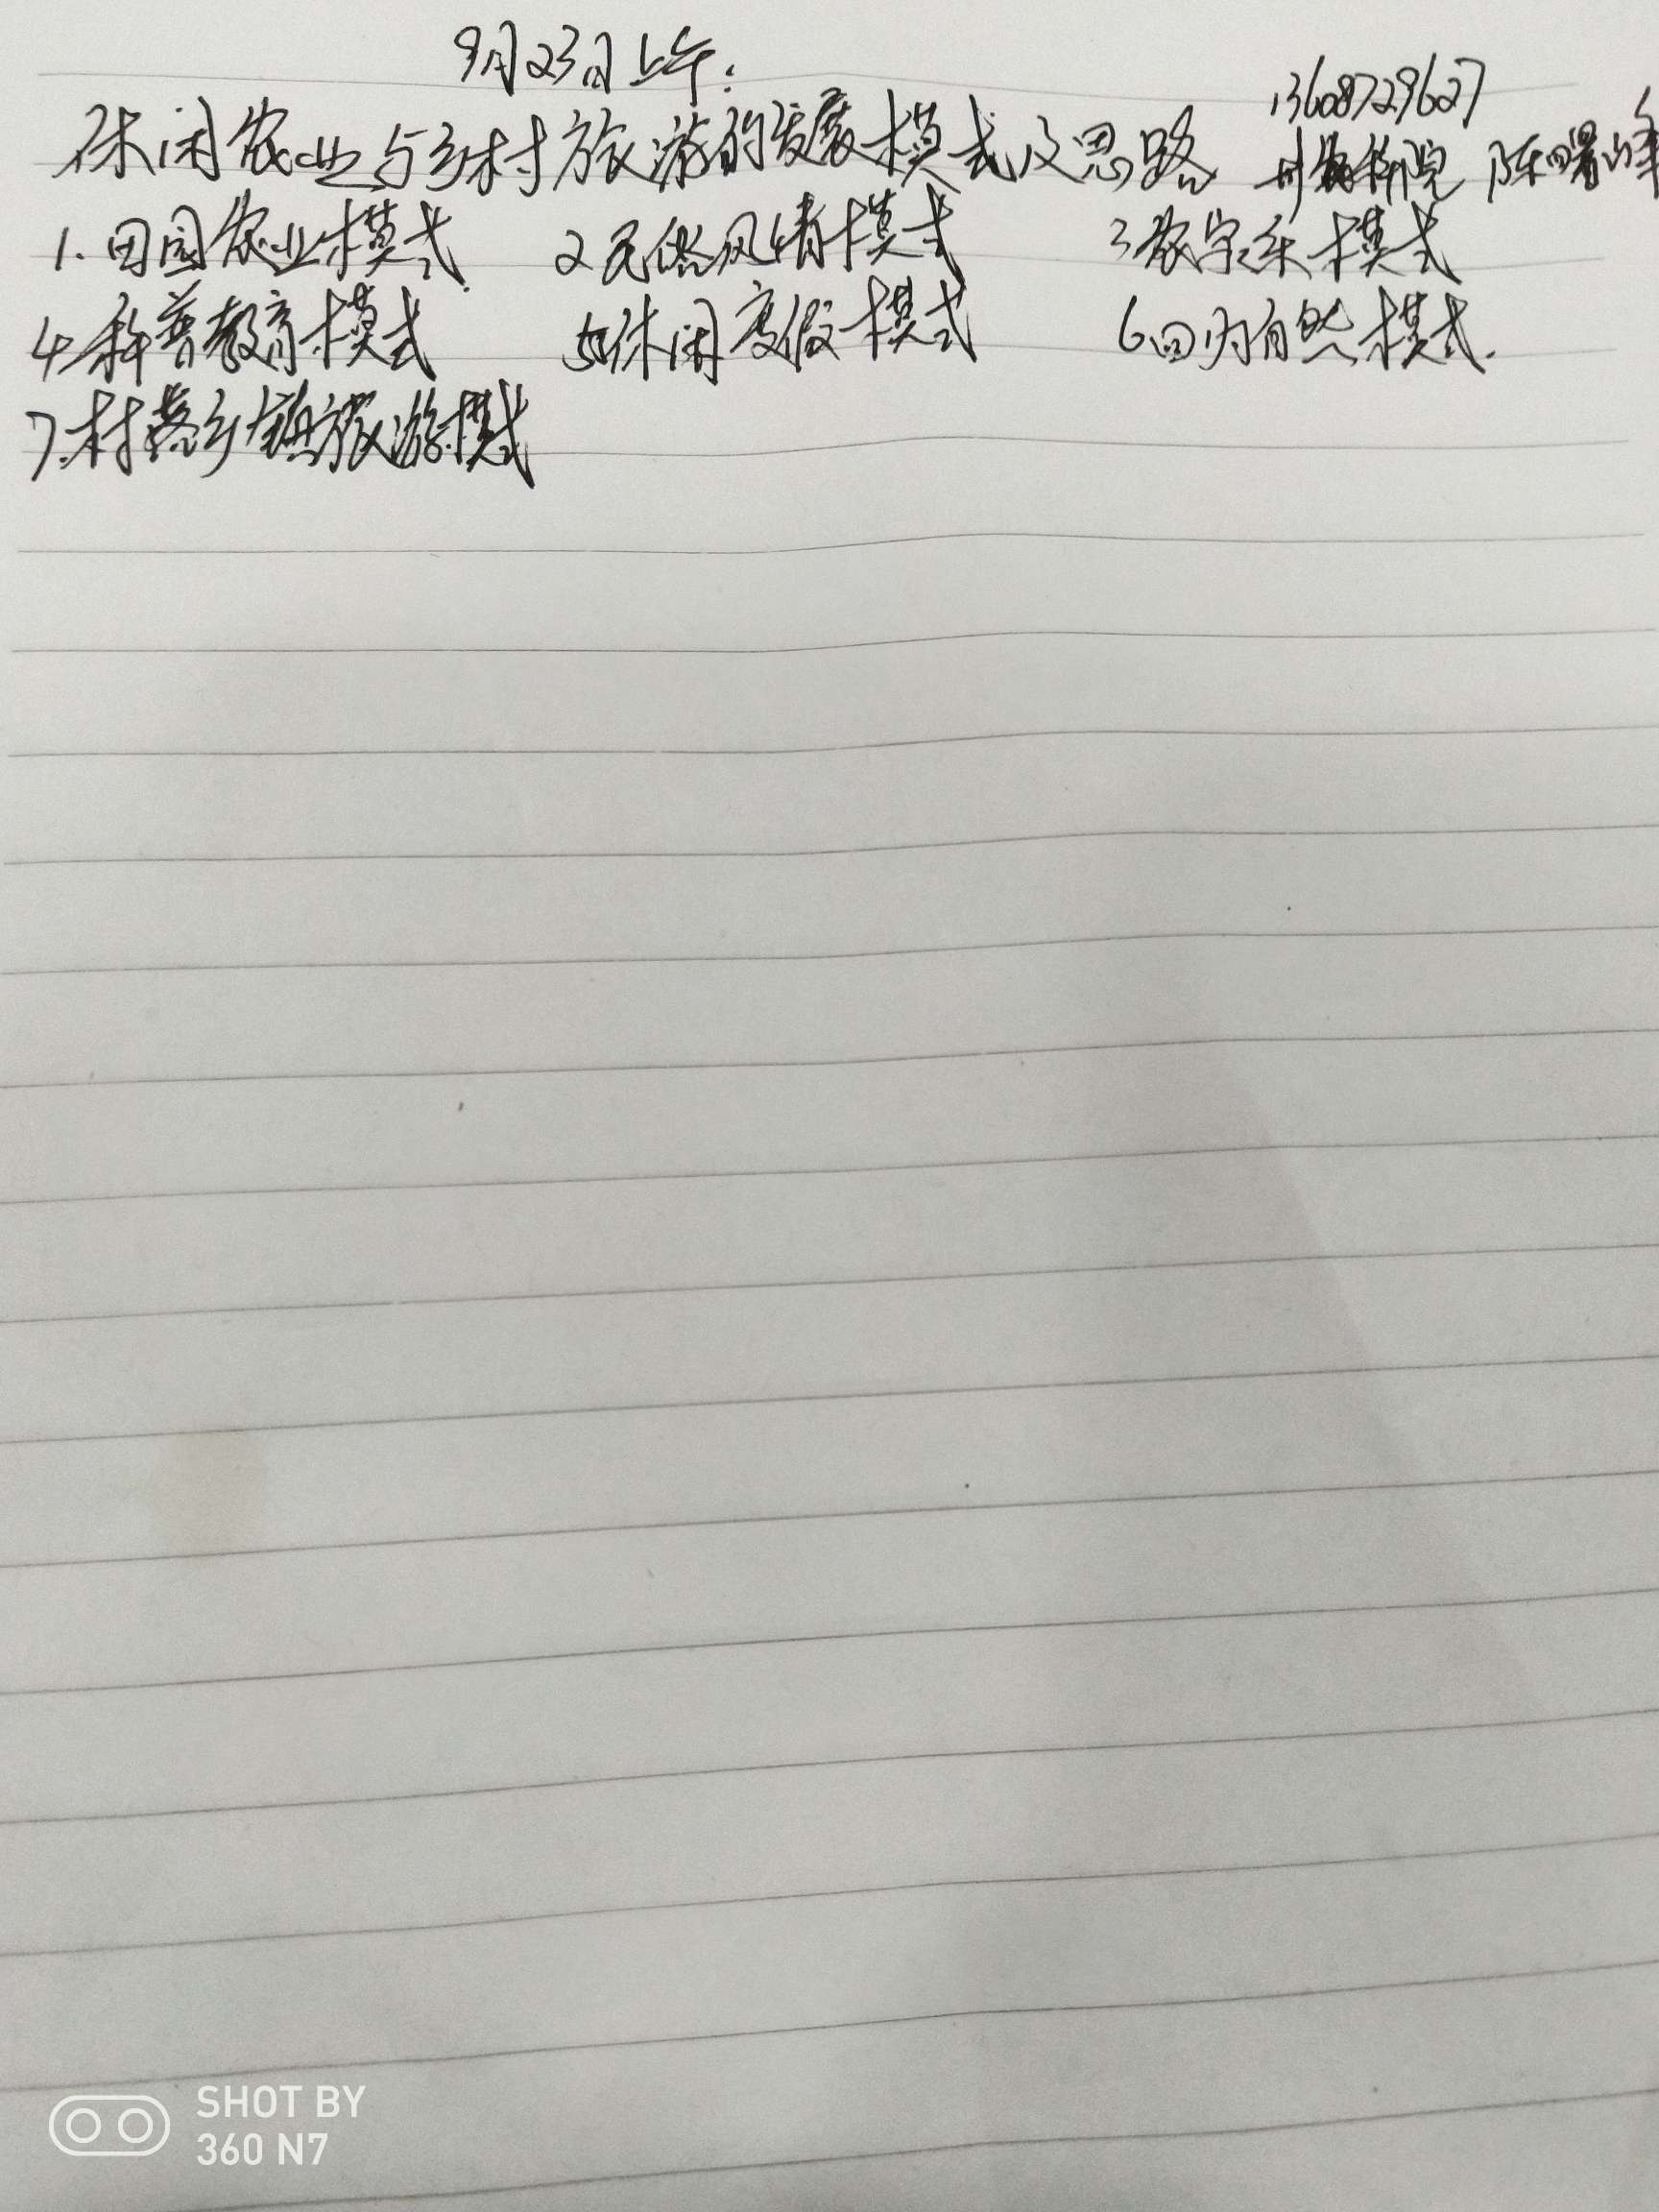 9月23日上午.
13608729627
休闲农业与乡村旅游的发展模式及思路 州农科院 陈曙峰
1.田园农业模式 2民俗风情模式 3农家乐模式
4.科普教育模式 5休闲度假模式 6回归自然模式.
7.村落乡镇旅游模式
SHOT BY
360 N7